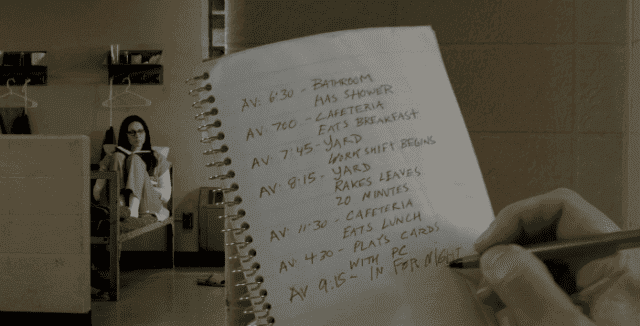 AV: 6:30 - BATHROOM
HAS SHOWER
AV: 700 - CAFETERIA
EATS BREAKFAST
AV: 7:45 - YARD
WORK SHIFT BEGINS
AV: 8:15 - YARD
RAKES LEAVES
20 MINUTES
AV: 11:30 - CAFETERIA
EATS LUNCH
AV: 4:20 - PLAYS CARDS
WITH PC
AV 9.15 - IN FOR NIGHT